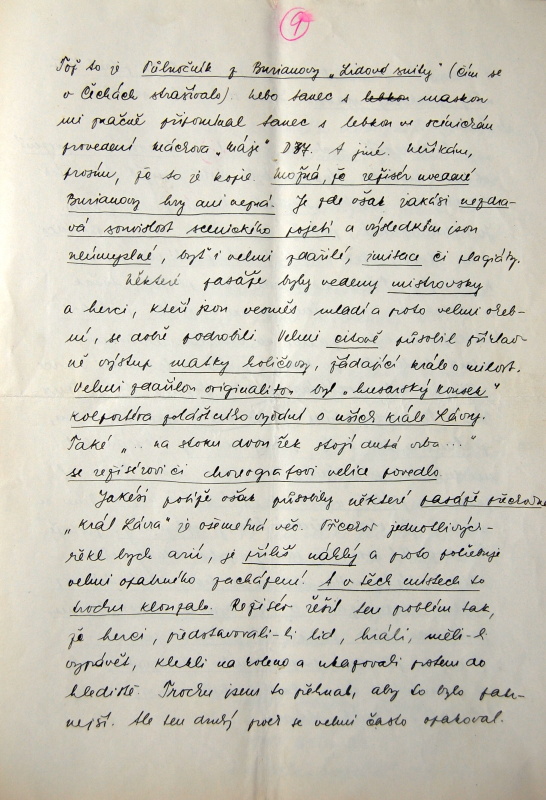 9
Též to je Půlnočník z Burianovy „Lidové suity" (čím se
v Čechách strašívalo). Nebo tanec s maskou
mi značně připomínal tanec s lebkou ve scénickém
provedení Máchova „Máje" D37. A jiné. Neříkám,
prosím, že to je kopie. Možná, že režisér uvedené
Burianovy hry ani nezná. Je zde však jakási nezdra-
vá souvislost scenického pojetí a výsledkem jsou
neúmyslné, byť i velmi zdařilé, imitace či plagiáty.
Některé pasáže byly vedeny mistrovsky
a herci, kteří jsou vesměs mladí a proto velmi oheb-
ní, se dobře podrobili. Velmi citově působil
ně výstup matky Kohičovy, žádající krále o milost.
Velmi zdařilou originalitou byl „husarský kousek"
kolportéra roznášejícího o uších krále Lávry.
Také „.. na stoku dvou řek stojí dutá vrba..."
se režisérovi či choreografovi velice povedlo.
Jakési potíže však působily některé pasáže
„Král Lávra" je ošemetná věc. Přechod jednotlivých
řekl bych arií, je příliš náhlý a proto potřebuje
velmi opatrného zacházení. A v těch místech to
trochu klouzalo. Režisér řešil ten problém tak,
že herci, představovali-li lid, hráli, měli-li
vyprávět, klekli na koleno a ukazovali prstem do
hlediště. Trochu jsem to přehnal, aby to bylo pat-
nější. Ale ten druh se velmi často opakoval.